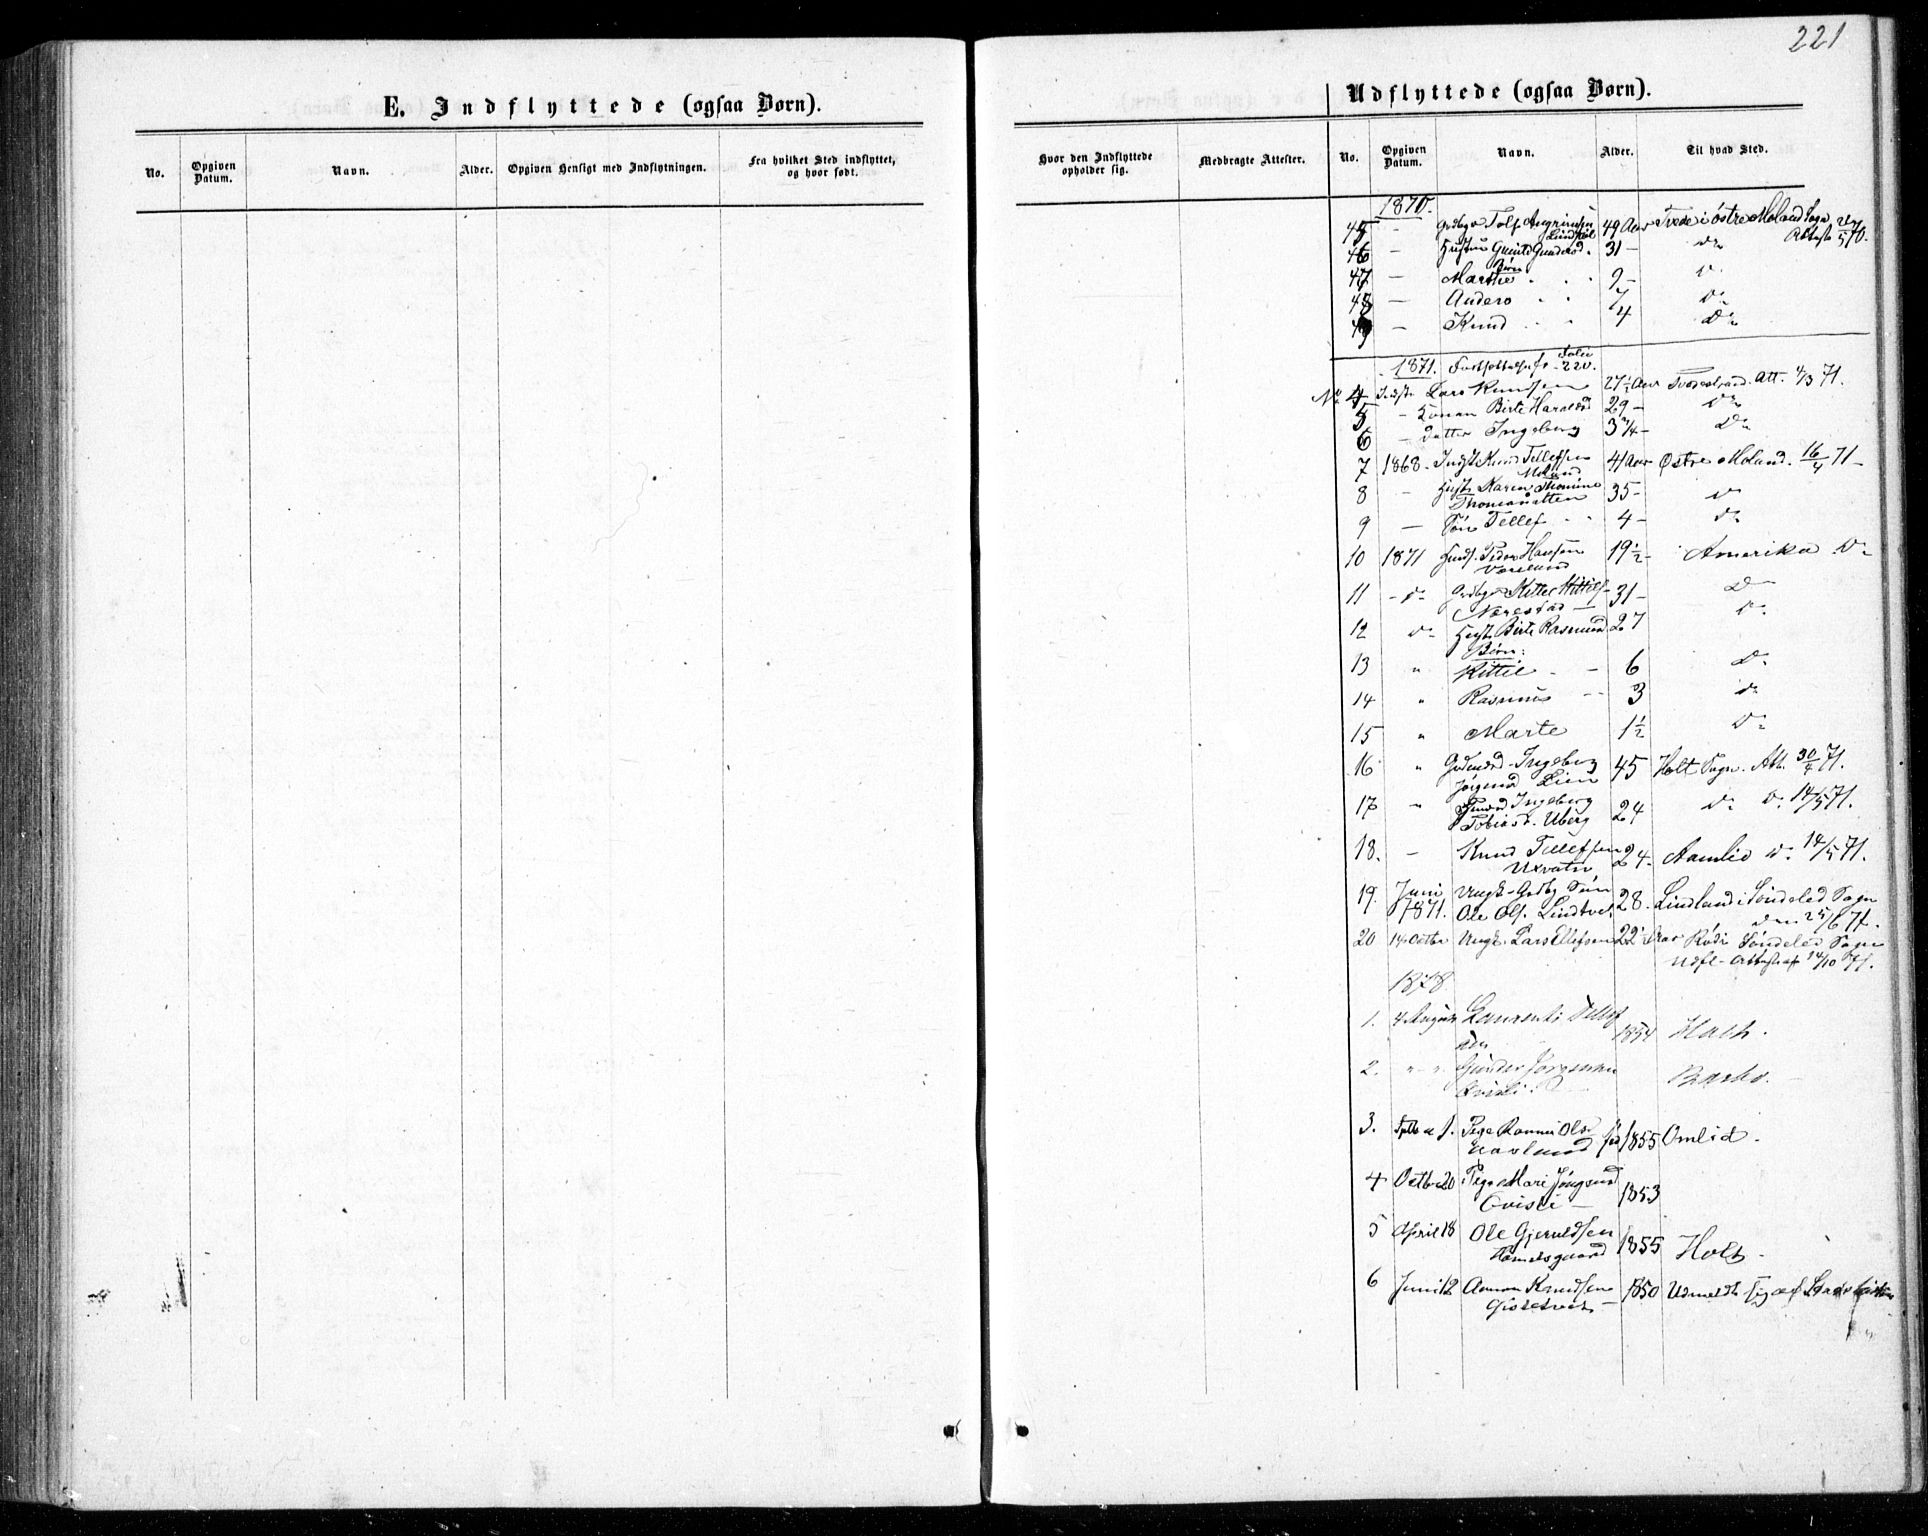 221
E. Indflyttede (ogsaa Børn).
Udflyttede (ogsaa Børn).
No. Opgiven Datum. Navn. Alder. Opgiven Hensigt med Indflytningen. Fra hvilket Sted indflyttet, og hvor født.
Hvor den Indflyttede opholder sig. Medbragte Attester. No. Opgiven Datum. Navn. Alder. Til hvad Sted.
1870.
45 - Tolf 49 Aar Tvede i østre Moland Sogn
Attest 5/70.
46 - Hustru Gundersd. 31 - do
Børn
47 - Marthe " " 9 - do
48 - Anders " " 7 do
49 - Knud " " 4 do
1871. Fortsættelse fr. Folio 220.
No 4 Indst. Lars Knudsen 27½ Aar Tvedestrand. Att. 4/3 71.
5 - Konen Birte Haralsd 29 - do
6 - datter Ingeborg 3 3/4 - do
7 1868. Indst. Knud Tellefsen 41 Aar Østre Moland. 16/4 71 -
Moland
8 - Hust. Karen Thomine 35 - do
Thomasdatten
9 - Søn Tellef " " 4 - do
10 1871 Peder Hansen 19½ - Amerika do
11 - do - Grdbgr Kittel Kittils- 31 - do
Narestad -
12 do Hust. Birte Rasmusd 27 do
Børn:
13 " Kittil - - 6 do
14 " Rasmus - - 3 do
15 " Marte 1½ do
16 " Ingeborg 45 Holt Sogn. Att. 30/4 71.
Jørgensd Lien
17 " Ingeborg 24 do do 14/5 71.
Tobiasd. Uberg
18. - Knud Tellefsen 24. Aamlid do 14/5 71.
Uxvatn
19. Juni Ungk. Grdbg Søn 28. Lindland i Søndeled Sogn
1871. Ole Ols. Lindtvet den 25/6 71.
20 14 Octbr Ungk. Lars Ellefsen 22 Aar Rød i Søndeled Sogn
Udfl. Attest 14/10 71.
1878
1. 4 August Tellef 1854 Holt.
2. " " Gunder Jorgensen Barbo. -
3. Septb a 1. Tege Olsd fød 1855 Omlid.
4 Octbr 20 Tege Mari Jörgensd 1853
Qvisti -
5 April 18 Ole Gjeruldsen 1855 Holt -
6 Juni 12 Aamon Knudsen 1850 Udmeldt sig af